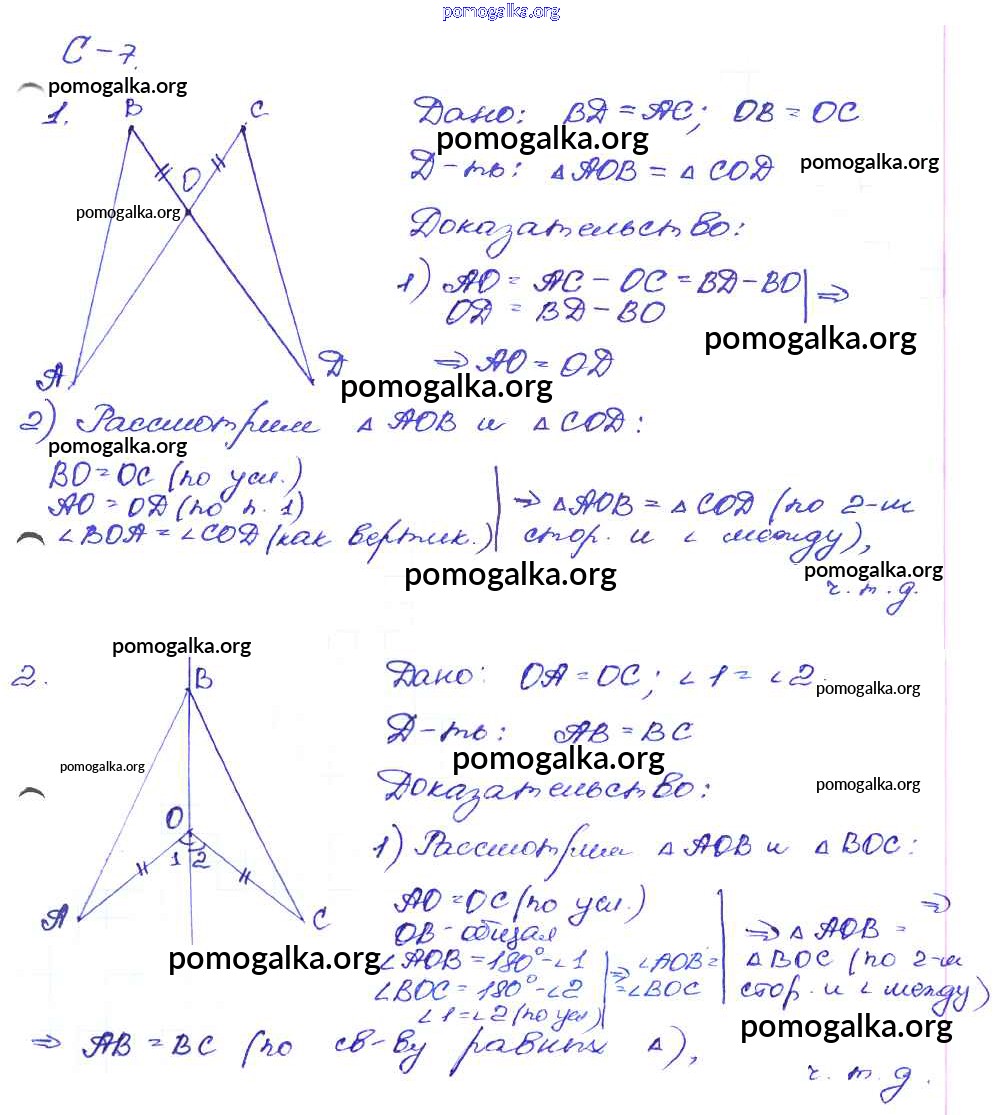 pomogalka.org
С-7.
pomogalka.org
1.
B
C
O
A
D
pomogalka.org
Дано: BD = AC; OB = OC
pomogalka.org
Д-ть: △ AOB = △ COD
pomogalka.org
Доказательство:
1) AO = AC - OC = BD - BO
OD = BD - BO
⇒
pomogalka.org
⇒ AO = OD
pomogalka.org
2) Рассмотрим △ AOB и △ COD:
pomogalka.org
BO = OC (по усл.)
AO = OD (по п. 1)
∠BOA = ∠COD (как вертик.)
⇒ △ AOB = △ COD (по 2-м
стор. и ∠ между),
pomogalka.org
pomogalka.org
ч.т.д.
pomogalka.org
2.
B
O
1 2
A
C
pomogalka.org
Дано: OA = OC; ∠1 = ∠2.
pomogalka.org
Д-ть: AB = BC
pomogalka.org
Доказательство:
pomogalka.org
1) Рассмотрим △ AOB и △ BOC:
AO = OC (по усл.)
OB - общая
∠AOB = 180° - ∠1
∠BOC = 180° - ∠2
∠1 = ∠2 (по усл)
⇒ ∠AOB =
= ∠BOC
⇒
⇒ △ AOB =
△ BOC (по 2-м
стор. и ∠ между)
pomogalka.org
pomogalka.org
⇒ AB = BC (по св-ву равных △),
ч.т.д.